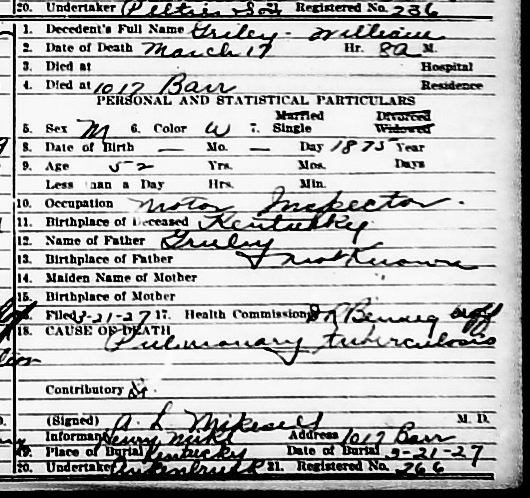 20. Undertaker Peltier & Son Registered No. 236
1. Decedent's Full Name Griley - William
2. Date of Death March 17 Hr. 8 a M.
3. Died at Hospital
4. Died at 1017 Barr Residence
PERSONAL AND STATISTICAL PARTICULARS
5. Sex M 6. Color W 7. Married Single Divorced Widowed
8. Date of Birth — Mo. — Day 1875 Year
9. Age 52 Yrs. Mos. Days
Less than a Day Hrs. Min.
10. Occupation Motor Inspector.
11. Birthplace of Deceased Kentucky
12. Name of Father Griley
13. Birthplace of Father not Known
14. Maiden Name of Mother
15. Birthplace of Mother
16. Filed 3-21-27 17. Health Commissioner
18. CAUSE OF DEATH
Pulmonary tuberculosis
Contributory
(Signed) A. L. Mikesell M. D.
Informant Henry Address 1017 Barr
19. Place of Burial Kentucky Date of Burial 3-21-27
20. Undertaker 21. Registered No. 266